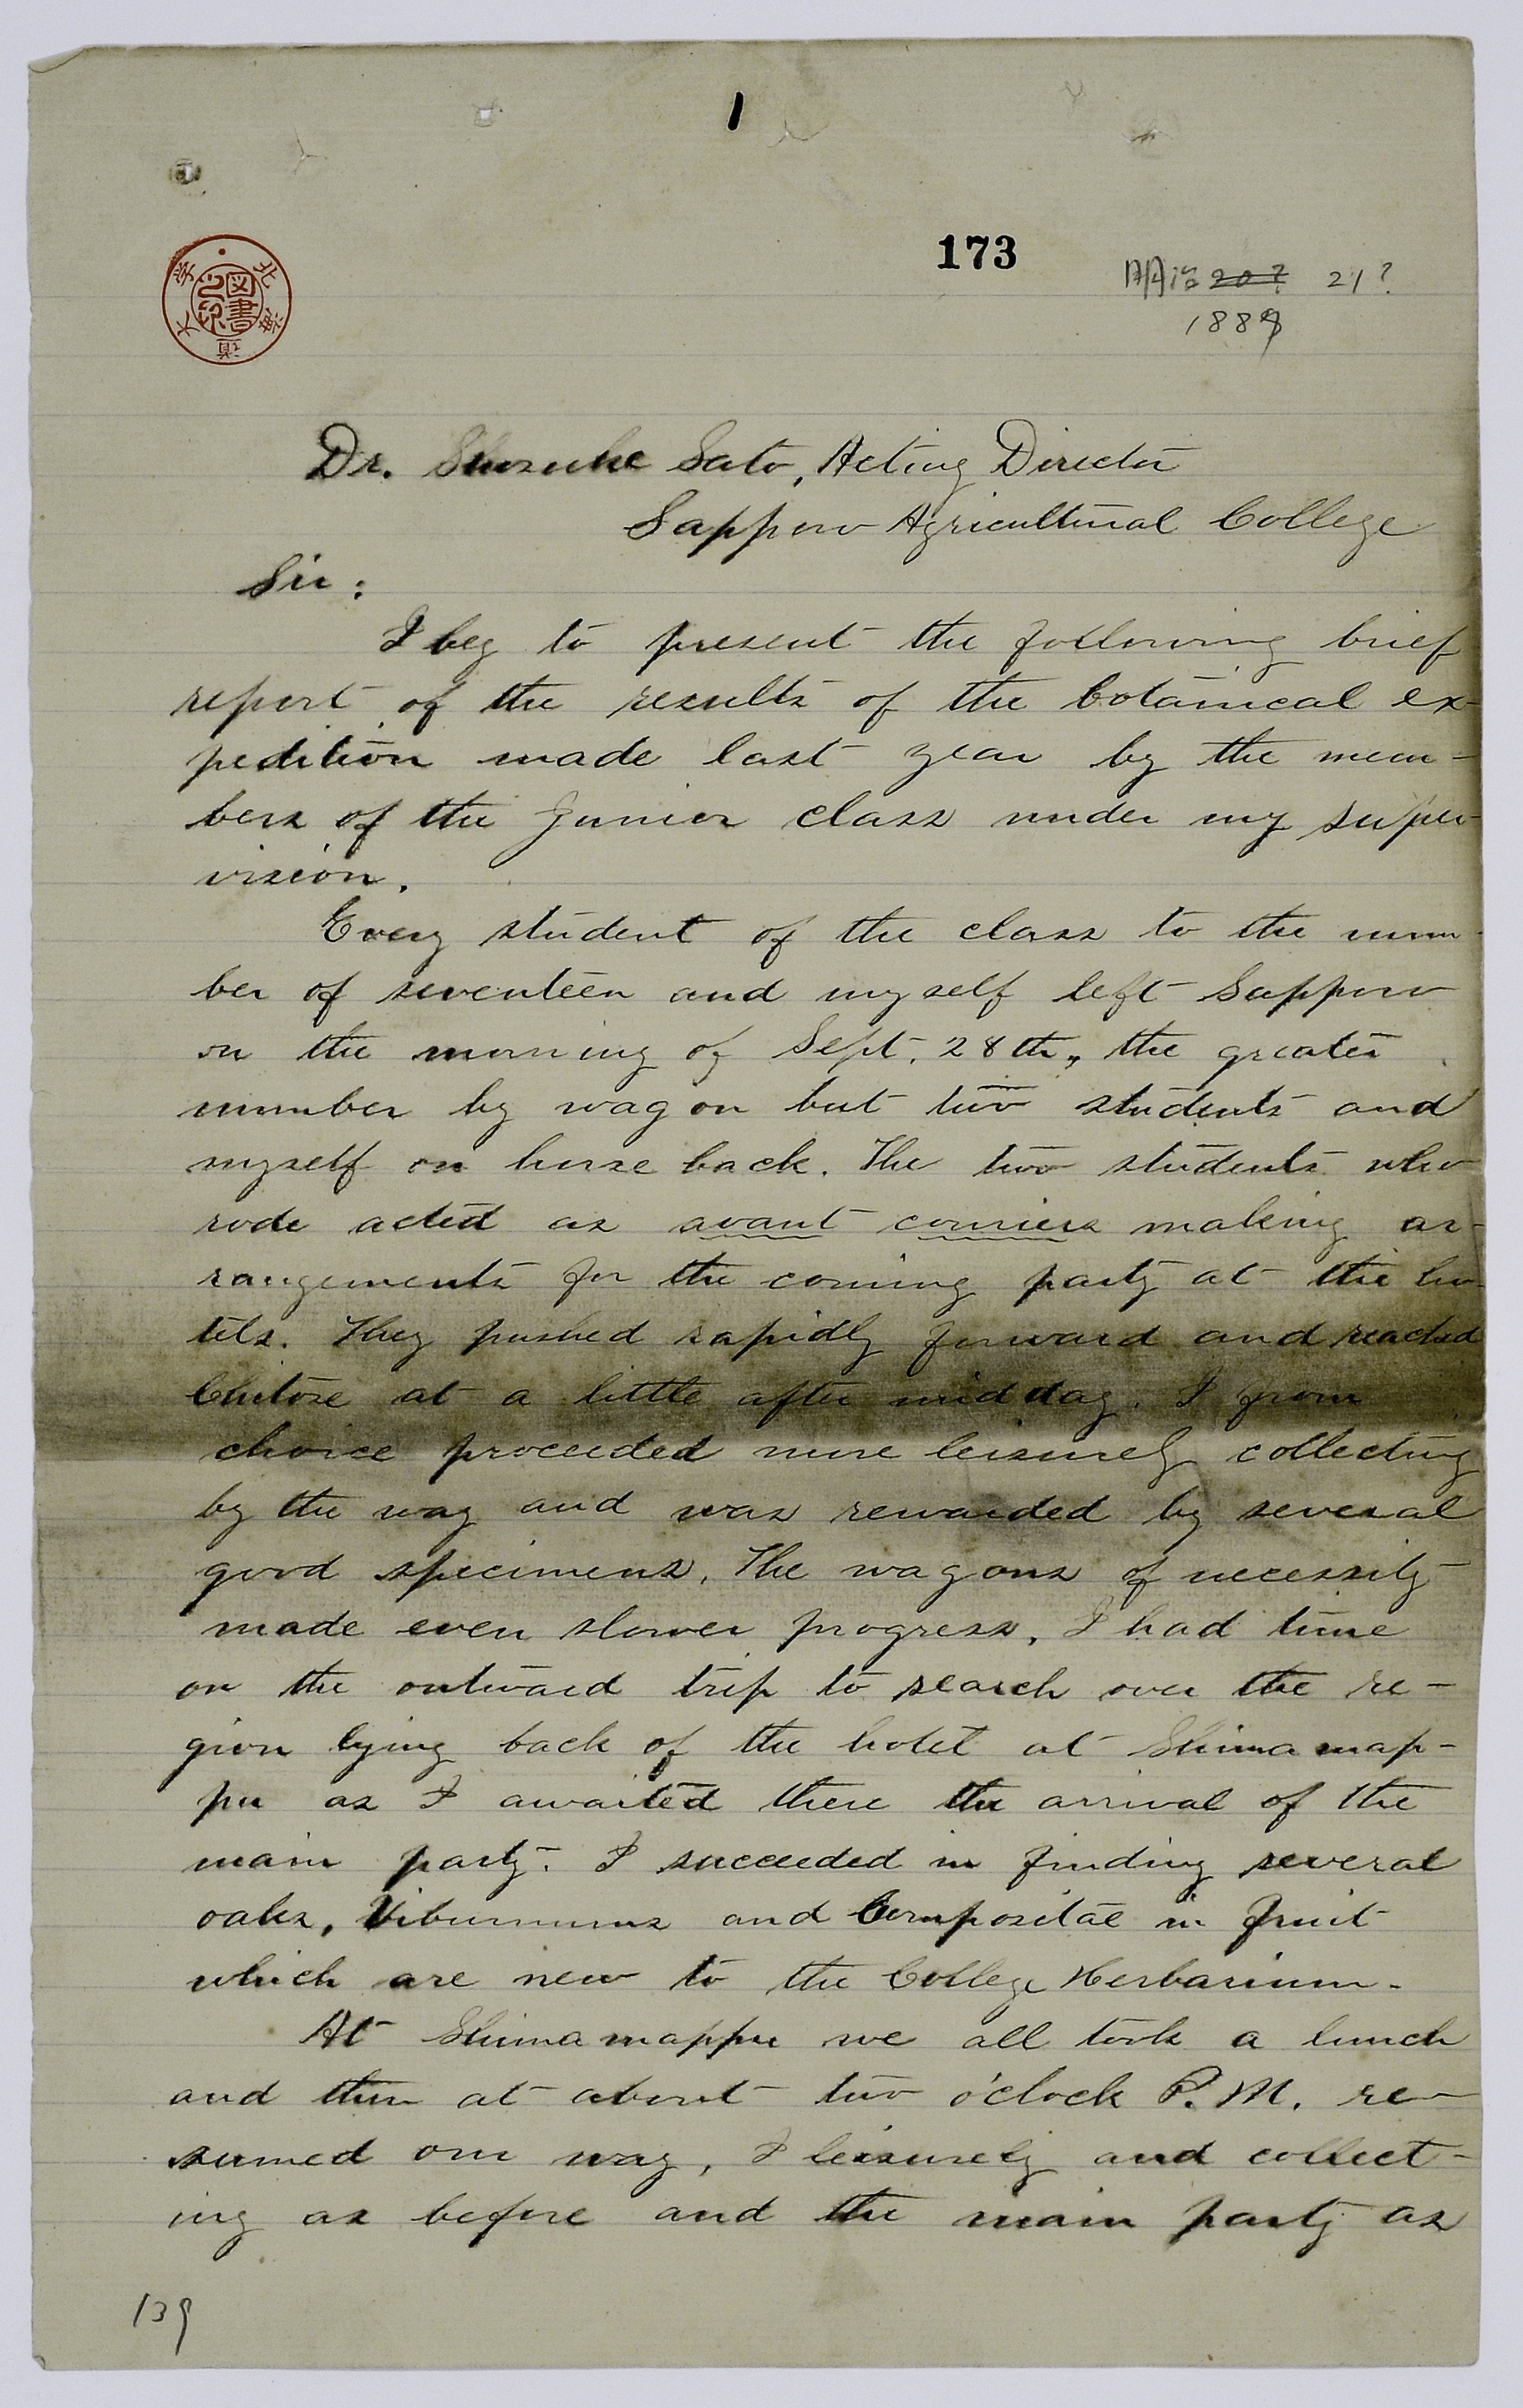 1
173
明治 20? 21?
1889
北海道大学
図書之印
Dr. Shosuke Sato, Acting Director
Sapporo Agricultural College
Sir:
I beg to present the following brief
report of the results of the botanical ex-
pedition made last year by the mem-
bers of the Junior class under my super-
vision.
Every student of the class to the num-
ber of seventeen and myself left Sapporo
on the morning of Sept. 28th, the greater
number by wagon but two students and
myself on horse back. The two students who
rode acted as avant courriers making ar-
rangements for the coming party at the ho-
tels. They pushed rapidly forward and reached
Chitose at a little after midday. I from
choice proceeded more leisurely collecting
by the way and was rewarded by several
good specimens. The wagons of necessity
made even slower progress. I had time
on the outward trip to search over the re-
gion lying back of the hotel at Shimamap-
pu as I awaited there the arrival of the
main party. I succeeded in finding several
oaks, Viburnums and Compositae in fruit
which are new to the College Herbarium.
At Shimamappu we all took a lunch
and then at about two o'clock P.M. re-
sumed our way, I leisurely and collect-
ing as before and the main party as
139